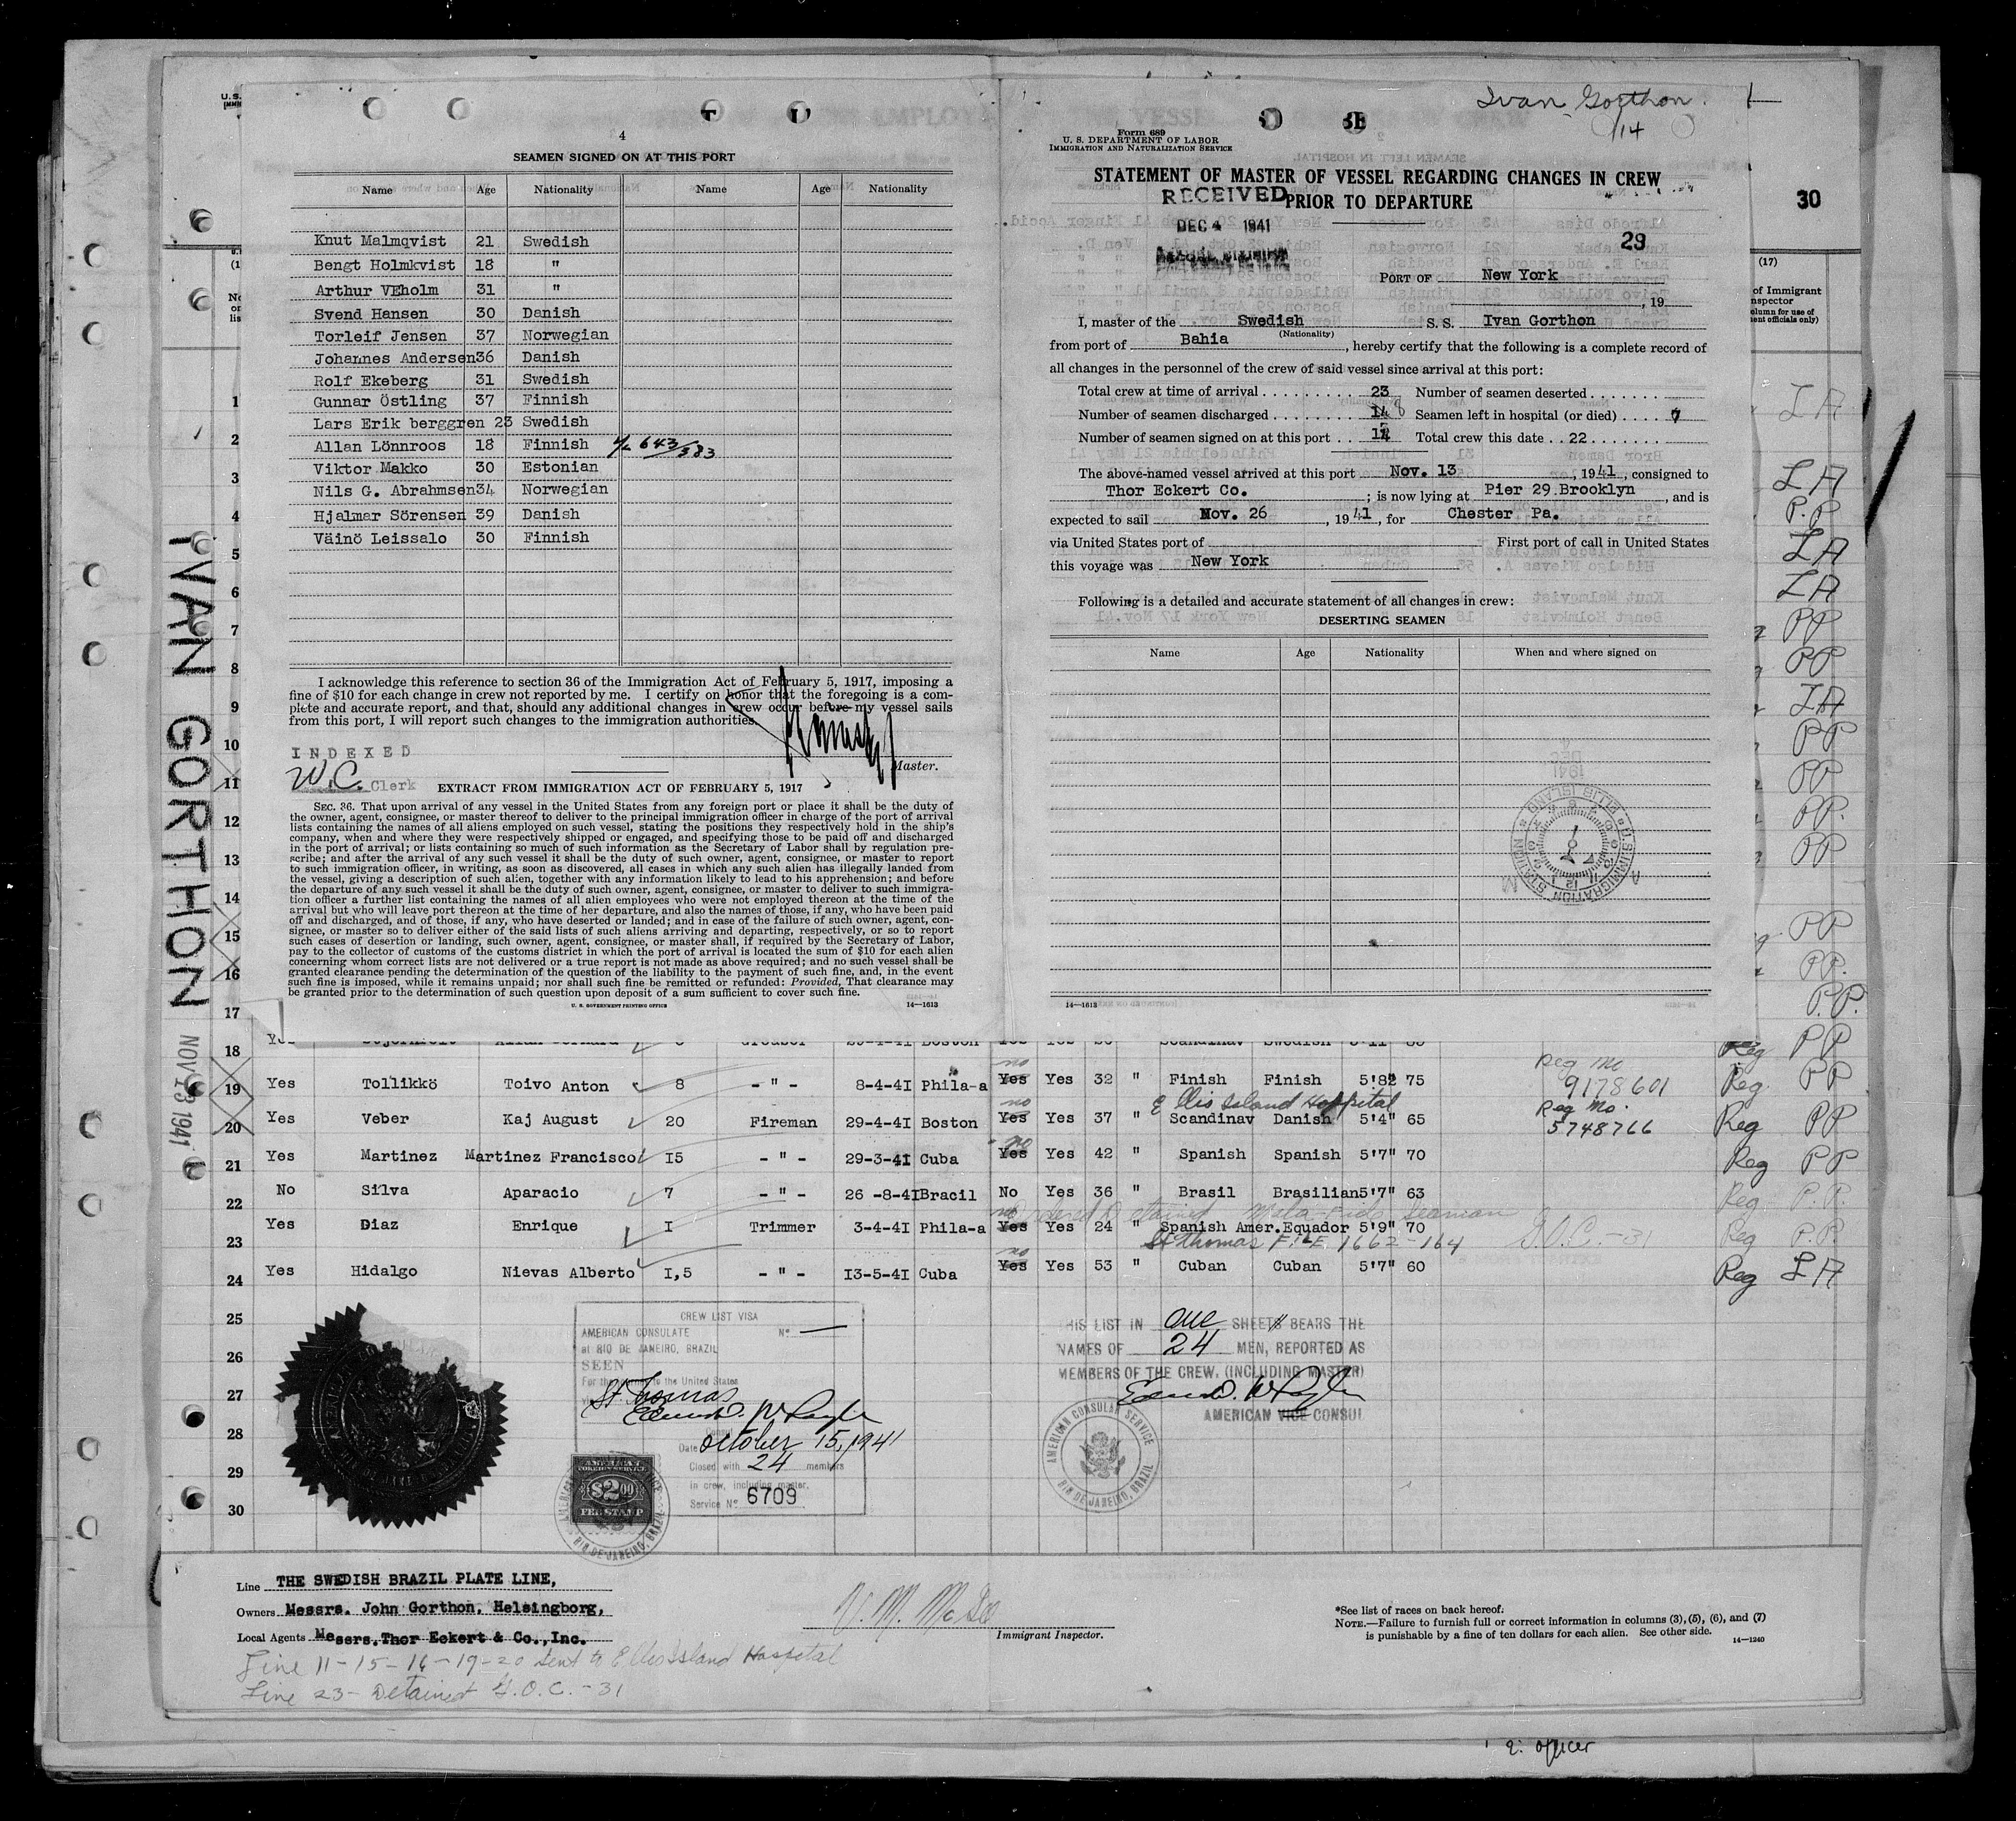 4
SEAMEN SIGNED ON AT THIS PORT
Name Age Nationality Name Age Nationality
Knut Malmqvist 21 Swedish
Bengt Holmkvist 18 "
Arthur VEholm 31 "
Svend Hansen 30 Danish
Torleif Jensen 37 Norwegian
Johannes Andersen 36 Danish
Rolf Ekeberg 31 Swedish
Gunnar Östling 37 Finnish
Lars Erik berggren 23 Swedish
Allan Lönnroos 18 Finnish 643/383
Viktor Makko 30 Estonian
Nils G. Abrahmsen 34 Norwegian
Hjalmar Sörensen 39 Danish
Väinö Leissalo 30 Finnish
I acknowledge this reference to section 36 of the Immigration Act of February 5, 1917, imposing a
fine of $10 for each change in crew not reported by me. I certify on honor that the foregoing is a com-
plete and accurate report, and that, should any additional changes in crew occur before my vessel sails
from this port, I will report such changes to the immigration authorities.
INDEXED
W.C. Clerk
Master.
EXTRACT FROM IMMIGRATION ACT OF FEBRUARY 5, 1917
SEC. 36. That upon arrival of any vessel in the United States from any foreign port or place it shall be the duty of
the owner, agent, consignee, or master thereof to deliver to the principal immigration officer in charge of the port of arrival
lists containing the names of all aliens employed on such vessel, stating the positions they respectively hold in the ship's
company, when and where they were respectively shipped or engaged, and specifying those to be paid off and discharged
in the port of arrival; or lists containing so much of such information as the Secretary of Labor shall by regulation pre-
scribe; and after the arrival of any such vessel it shall be the duty of such owner, agent, consignee, or master to report
to such immigration officer, in writing, as soon as discovered, all cases in which any such alien has illegally landed from
the vessel, giving a description of such alien, together with any information likely to lead to his apprehension; and before
the departure of any such vessel it shall be the duty of such owner, agent, consignee, or master to deliver to such immigra-
tion officer a further list containing the names of all alien employees who were not employed thereon at the time of the
arrival but who will leave port thereon at the time of her departure, and also the names of those, if any, who have been paid
off and discharged, and of those, if any, who have deserted or landed; and in case of the failure of such owner, agent, con-
signee, or master so to deliver either of the said lists of such aliens arriving and departing, respectively, or so to report
such cases of desertion or landing, such owner, agent, consignee, or master shall, if required by the Secretary of Labor,
pay to the collector of customs of the customs district in which the port of arrival is located the sum of $10 for each alien
concerning whom correct lists are not delivered or a true report is not made as above required; and no such vessel shall be
granted clearance pending the determination of the question of the liability to the payment of such fine, and, in the event
such fine is imposed, while it remains unpaid; nor shall such fine be remitted or refunded: Provided, That clearance may
be granted prior to the determination of such question upon deposit of a sum sufficient to cover such fine.
U. S. GOVERNMENT PRINTING OFFICE 14—1613
Ivan Gorthon
14
Form 689
U. S. DEPARTMENT OF LABOR
IMMIGRATION AND NATURALIZATION SERVICE
STATEMENT OF MASTER OF VESSEL REGARDING CHANGES IN CREW
PRIOR TO DEPARTURE
RECEIVED
DEC 4 1941
30
29
PORT OF New York
, 19
I, master of the Swedish S. S. Ivan Gorthon
(Nationality)
from port of Bahia, hereby certify that the following is a complete record of
all changes in the personnel of the crew of said vessel since arrival at this port:
Total crew at time of arrival 23 Number of seamen deserted
Number of seamen discharged 14 8 Seamen left in hospital (or died) 7
Number of seamen signed on at this port 14 Total crew this date 22
The above-named vessel arrived at this port Nov. 13, 1941, consigned to
Thor Eckert Co.; is now lying at Pier 29 Brooklyn, and is
expected to sail Nov. 26, 1941, for Chester Pa.
via United States port of First port of call in United States
this voyage was New York
Following is a detailed and accurate statement of all changes in crew:
DESERTING SEAMEN
Name Age Nationality When and where signed on
14—1613
(17)
of Immigrant
nspector
olumn for use of
ent officials only)
IVAN GORTHON
NOV 13 1941
1
2
3
4
5
6
7
8
9
10
11
12
13
14
15
16
17
18
19 Yes Tollikkö Toivo Anton 8 - " - 8-4-41 Phila-a no Yes Yes 32 " Finish Finish 5'8½ 75 Reg No 9178601 Reg PP
Ellis Island Hospital
20 Yes Veber Kaj August 20 Fireman 29-4-41 Boston no Yes Yes 37 " Scandinav Danish 5'4" 65 Reg No. 5748766 Reg PP
21 Yes Martinez Martinez Francisco 15 - " - 29-3-41 Cuba no Yes Yes 42 " Spanish Spanish 5'7" 70 Reg PP
22 No Silva Aparacio 7 - " - 26 -8-41 Bracil No Yes 36 " Brasil Brasilian 5'7" 63 Reg P.P.
Ordered Detained Mala-Fide Seaman
23 Yes Diaz Enrique I Trimmer 3-4-41 Phila-a no Yes Yes 24 " Spanish Amer. Equador 5'9" 70 Reg P.P.
St Thomas FILE 1662-164
24 Yes Hidalgo Nievas Alberto I,5 - " - 13-5-41 Cuba no Yes Yes 53 " Cuban Cuban 5'7" 60 Reg LA
25
26
27
28
29
30
CREW LIST VISA
AMERICAN CONSULATE No —
at RIO DE JANEIRO, BRAZIL
SEEN
St Thomas
Date October 15, 1941
Closed with 24 members
in crew, including master.
Service No 6709
$2.00
PER STAMP
RIO DE JANEIRO, BRAZIL
THIS LIST IN one SHEETS BEARS THE
NAMES OF 24 MEN, REPORTED AS
MEMBERS OF THE CREW, (INCLUDING MASTER)
AMERICAN VICE CONSUL
AMERICAN CONSULAR SERVICE
RIO DE JANEIRO, BRAZIL
Line THE SWEDISH BRAZIL PLATE LINE,
Owners Messrs. John Gorthon, Helsingborg,
Local Agents Messrs. Thor Eckert & Co., Inc.
Immigrant Inspector.
*See list of races on back hereof.
NOTE.—Failure to furnish full or correct information in columns (3), (5), (6), and (7)
is punishable by a fine of ten dollars for each alien. See other side. 14—1240
Line 11-15-16-19-20 sent to Ellis Island Hospital
Line 23- Detained
officer